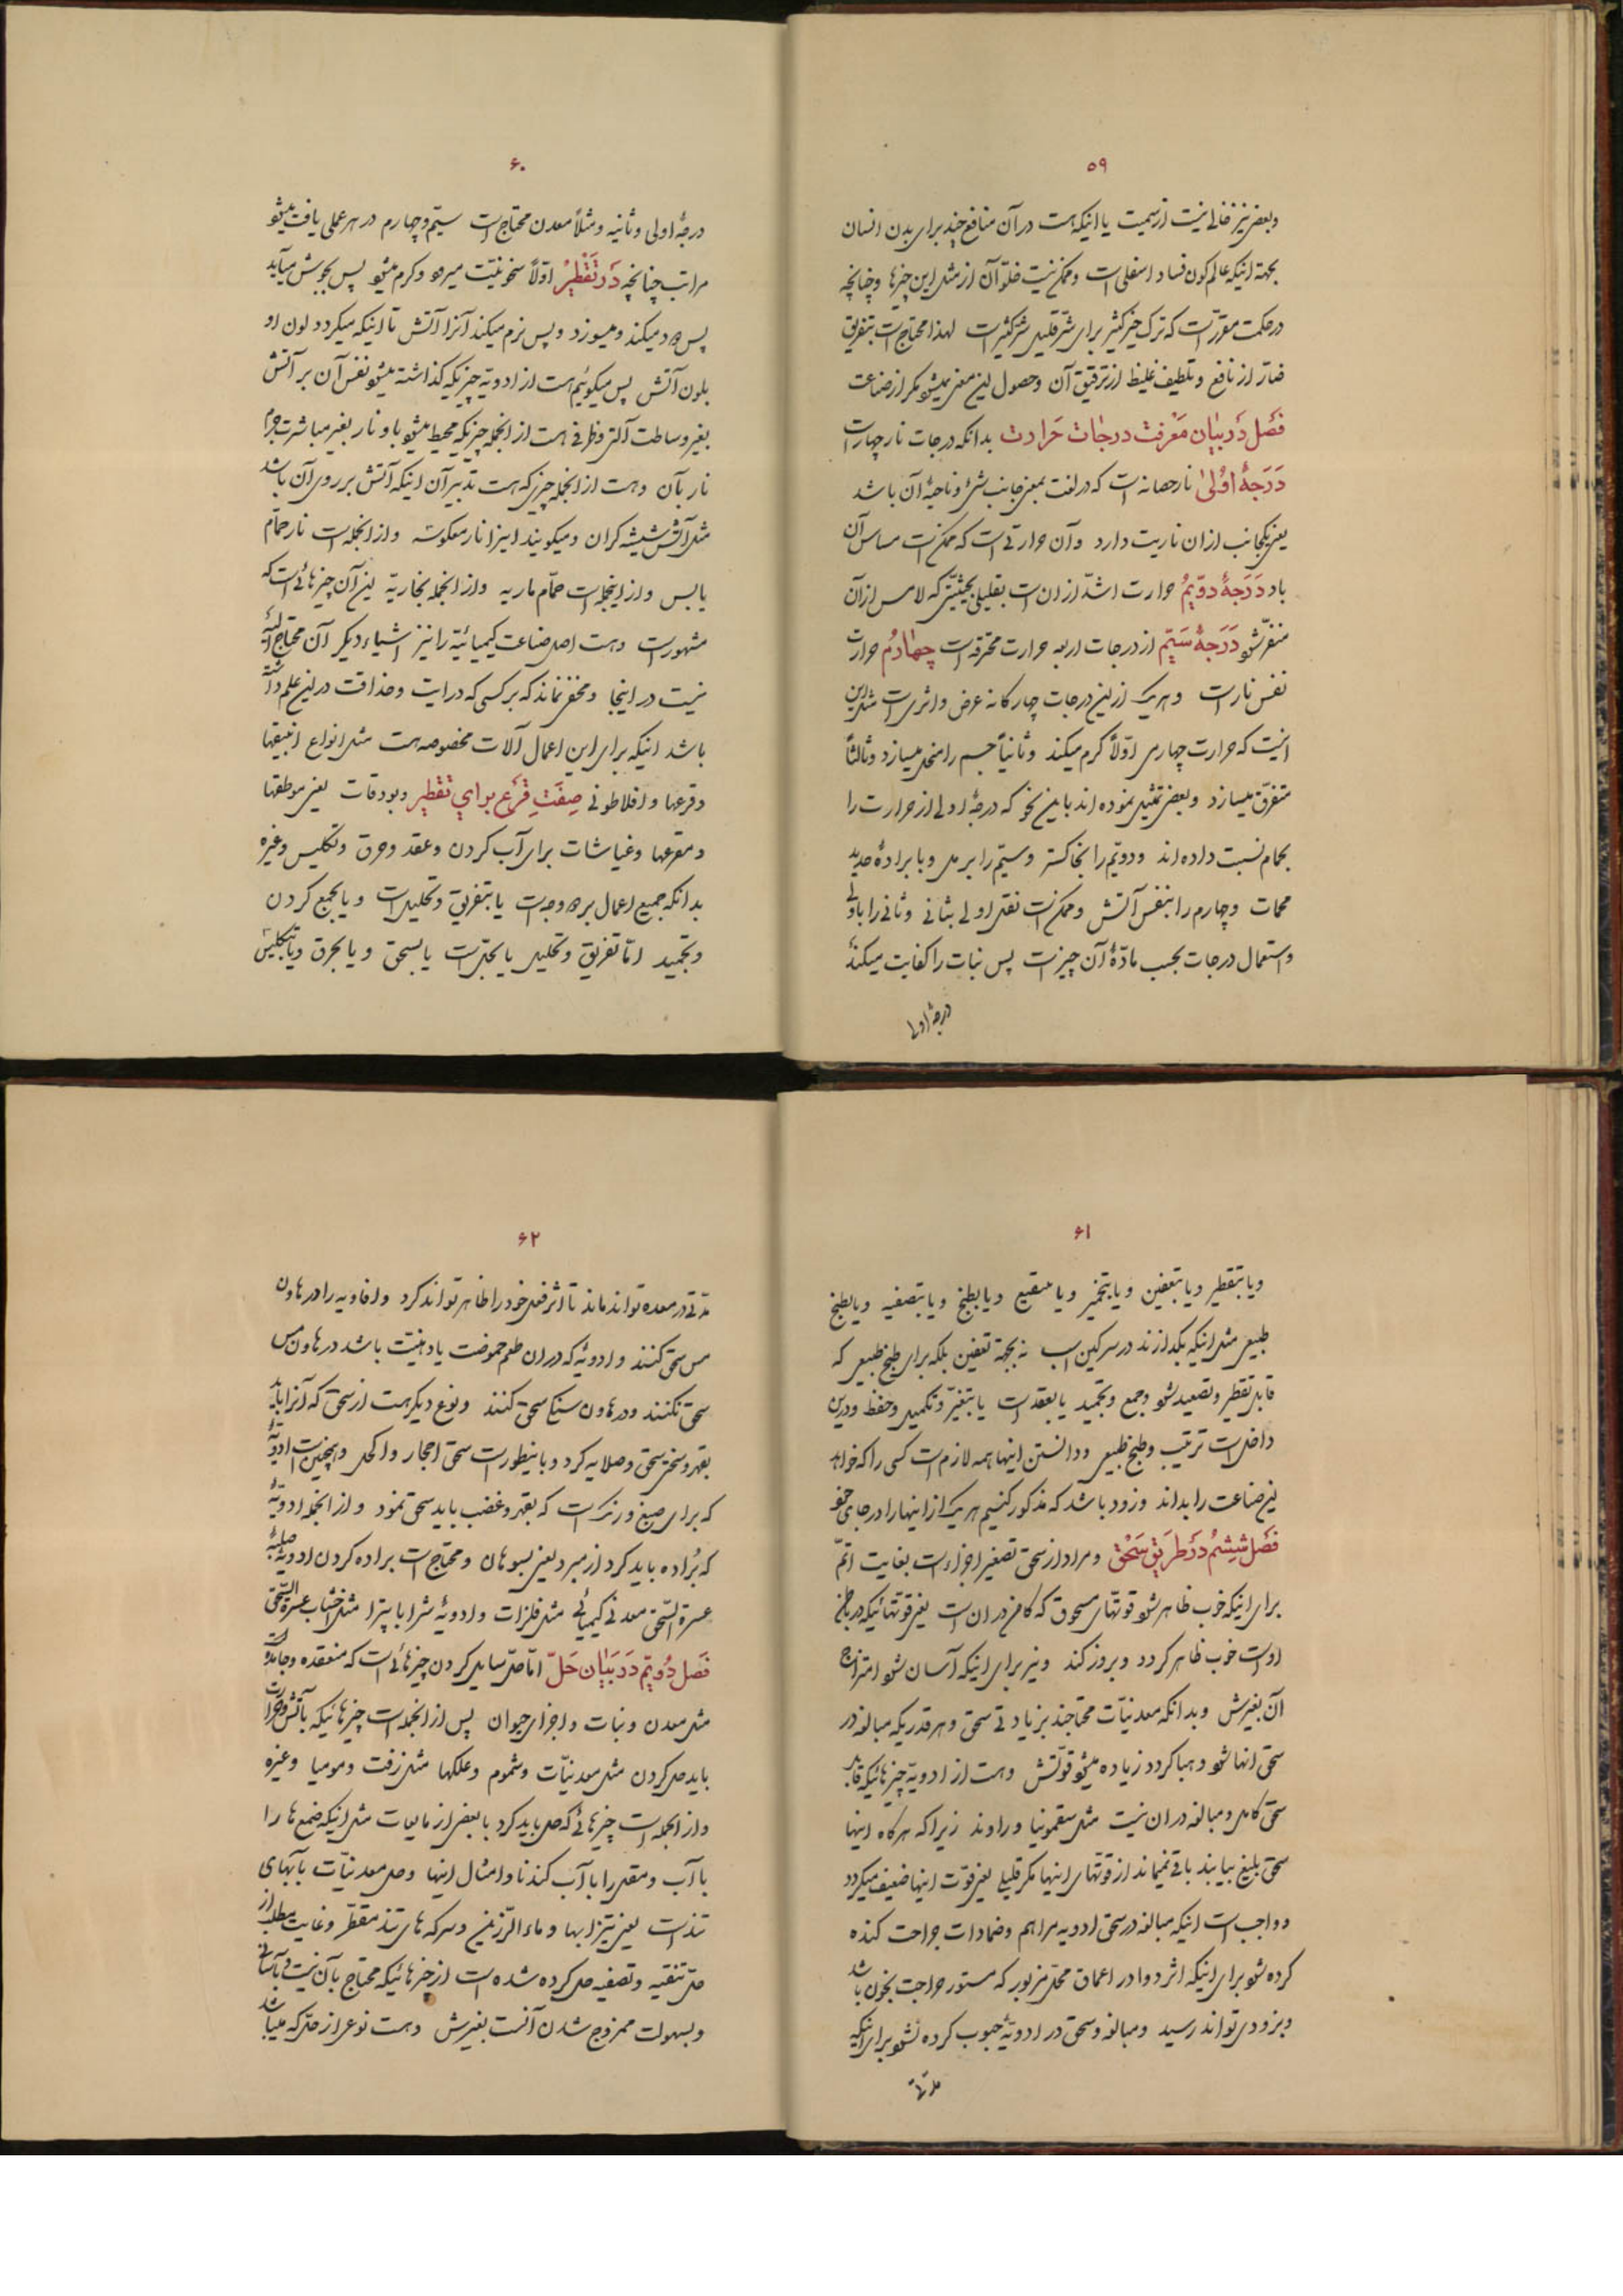 ۵۹
وبعضی نیز خالی نیست از سمیت یا اینکه هست در آن منافع چند برای بدن انسان
بجهة اینکه عالم کون فساد اسفلی است وممکن نیست خلوّ آن از مثل این چیزها وچنانچه
در حکمت مقرّر است که ترک خیر کثیر برای شرّ قلیل شرّ کثیر است لهذا محتاج است بتفریق
ضارّ از نافع وتلطیف غلیظ از ترقیق آن وحصول این معنی نمیشود مکر از صناعت
فصل در بیان معرفت درجات حرارت بدانکه درجات نار چهار است
درجهٔ اولی نار حصانه است که در لغت بمعنی جانب شیٔ وناحیهٔ آن باشد
یعنی یکجانب از ان ناریت دارد وآن حرارتی است که ممکن است مساس آن
باد درجهٔ دویّم حرارت اشدّ از ان است بقلیلی بحیثیّتی که لامس از آن
متفرّ شود درجهٔ سیّم از درجات اربعه حرارت محرقه است چهارم حرارت
نفس نار است وهریک از این درجات چهار کانه عرض واثری است مثل این
انیست که حرارت چهارمی اوّلاً کرم میکند وثانیاً جسم را منحل میسازد وثالثاً
متفرّق میسازد وبعضی تمثیل نموده اند باین نحو که درجهٔ اولی از حرارت را
بحمام نسبت داده اند ودویّم را بخاکستر وسیّم را برمل ویا برادهٔ حدید
محمات وچهارم را بنفس آتش وممکن است نقل اولی بثانی وثانی را باولی
واستعمال درجات بحسب مادّهٔ آن چیز است پس نبات را کفایت میکند
درجهٔ اولی
۶۰
درجهٔ اولی وثانیه ومثلاً معدن محتاج است سیّم وچهارم در هر عملی یافت میشود
مراتب چنانچه در تقطیر اوّلاً سخونیّت میرود وکرم میشود پس بجوش میآید
پس دود میکند ومیسوزد وپس نرم میکند آنرا آتش تا اینکه میکردد لون او
بلون آتش پس میکوئیم هست از ادویّه چیزیکه کذاشته میشود نفس آن بر آتش
بغیر وساطت آلتی وظرفی هست از انجمله چیزیکه محیط میشود باو نار بغیر مباشرت جرم
نار بآن وهست از انجمله چیزی که هست تدبیر آن اینکه آتش بر روی آن باشد
مثل آتش شیشه کران ومیکویند اینرا نار معکوسه واز انجمله است نار حمّام
یابس واز اینجمله است حمّام ماریه واز انجمله بخاریّه این آن چیزهائی است که
مشهور است وهست اصل صناعت کیمیائیّه را نیز اشیاء دیکر آن محتاج الیه
نیست در اینجا ومخفی نماند که بر کسی که درایت وحذاقت در این علم داشته
باشد اینکه برای این اعمال آلات مخصوصه هست مثل انواع انبیقها
وقرعها وافلاطونی صفت قرع برای تقطیر وبودقات یعنی موطقها
ومقرعها وغیاشات برای آب کردن وعقد وحرق وتکلیس وغیره
بدانکه جمیع اعمال بر دو وجه است یا بتفریق وتحلیل است ویا بجمع کردن
وتجمید امّا تفریق وتحلیل یا بحلّ است یا بسحق ویا بحرق ویا بتکلیس
۶۱
ویا بتقطیر ویا بتعفین ویا بتخمیر ویا بتنقیع ویا بطبخ ویا بتصفیه ویا بطبخ
طبیعی مثل اینکه بکدازند در سرکین اسب نه بجهة تعفین بلکه برای طبخ طبیعی که
قابل تقطیر وتصعید شود وجمع وتجمید یا بعقد است یا بتغیّر وتکمیل وحفظ ودرین
داخل است ترتیب وطبخ طبیعی ودانستن اینها همه لازم است کسی را که خواهد
این صناعت را بداند وزود باشد که مذکور کنیم هریک از اینها را در جای خود
فصل ششم در طریق سحق ومراد از سحق تصغیر اجزاء است بغایت اتمّ
برای اینکه خوب ظاهر شود قوتهای مسحوق که کامن در ان است یعنی قوتهائیکه در باطن
اوست خوب ظاهر کردد وبروز کند ونیز برای اینکه آسان شود امتزاج
آن بغیرش وبدانکه معدنیّات محتاجند بزیادتی سحق وهرقدریکه مبالغه در
سحق انها شود وهبا کردد زیاده میشود قوّتش وهست از ادویّه چیزهائیکه قابل
سحق کامل ومبالغه در ان نیست مثل سقمونیا وراوند زیرا که هرکاه اینها
سحق بلیغ بیابند باقی نمیماند از قوتهای اینها مکر قلیلی یعنی قوّت اینها ضعیف میکردد
وواجب است اینکه مبالغه در سحق ادویه مراهم وضمادات جراحت کنده
کرده شود برای اینکه اثر دوا در اعماق محلّ مزبور که مستور جراحت بخون باشد
وبزودی تواند رسید ومبالغه وسحق در ادویهٔ حبوب کرده نشود برای اینکه
مدّتی
۶۲
مدّتی در معده تواند ماند تا اثر فعل خود را ظاهر تواند کرد وافاویه را در هاون
مس سحق کنند وادویّه که در ان طعم حموضت یا دهنیّت باشد در هاون مس
سحق نکنند ودر هاون سنک سحق کنند ونوع دیکر هست از سحق که آنرا باید
بقهر وسختی سحق وصلایه کرد وباینطور است سحق احجار واکحل وهمچنین است ادویّهٔ
که برای صبغ ورنک است که بقهر وغضب باید سحق نمود واز انجمله ادویّهٔ
که بُراده باید کرد از مبرد یعنی بسوهان ومحتاج است براده کردن ادویّهٔ صلبهٔ
عسرة السّحق معدنی کیمیائی مثل فلزات وادویّهٔ مثل اخشاب عسرة السّحق
فصل دویّم در بیان حلّ امّا حلّ سایل کردن چیزهائی است که منعقده وجامد
مثل معدن ونبات واجزای حیوان پس از انجمله است چیزهائیکه بآتش وحرارت
باید حل کردن مثل معدنیّات وشموم وعلکها مثل زفت ومومیا وغیره
واز انجمله است چیزهائی که حل باید کرد با بعضی از مایعات مثل اینکه ضمغ ها را
با آب ومقل را با آب کندنا وامثال اینها وحل معدنیّات بآبهای
تند است یعنی تیزابها وماء الرّزین وسرکه های تند مقطّر وغایت مطلب از
حلّ تنقیه وتصفیه حل کرده شده است از چیزهائیکه محتاج بآن نیست وبآسانی
وبسهولت ممزوج شدن آنست بغیرش وهست نوعی از حلّ که میباشد